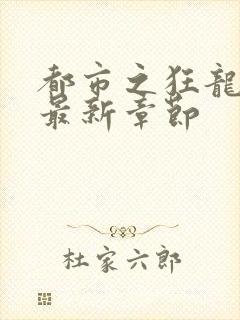 都市之狂龍
最新章節
杜家六郎